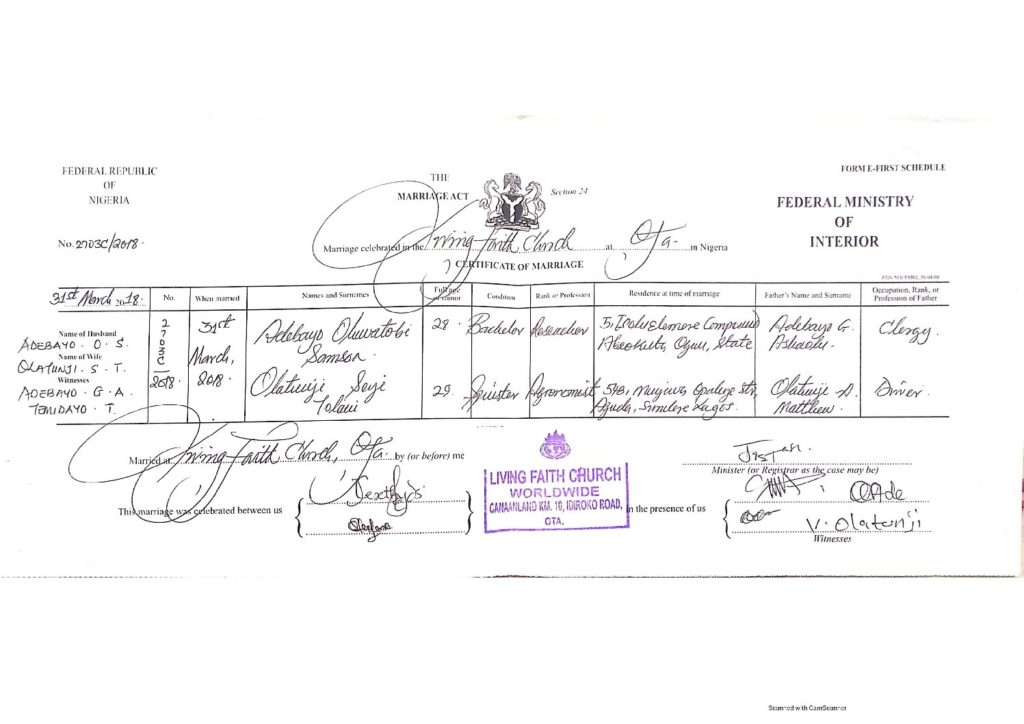 FEDERAL REPUBLIC
OF
NIGERIA
THE
MARRIAGE ACT
Section 24
FORM E-FIRST SCHEDULE
FEDERAL MINISTRY
OF
INTERIOR
No. 2703C/2018.
Marriage celebrated in the Living Faith Church at Ota. in Nigeria
CERTIFICATE OF MARRIAGE
31st March 2018.
No.
When married
Names and Surnames
Full age or minor
Condition
Rank or Profession
Residence at time of marriage
Father's Name and Surname
Occupation, Rank, or Profession of Father
Name of Husband
ADEBAYO . O . S.
Name of Wife
OLATUNJI . S . T.
Witnesses
ADEBAYO . G . A
TEMIDAYO . T.
2703C
2018.
31st March, 2018
Adebayo Oluwatobi
Samson.
28.
Bachelor
Researcher
Compound
Abeokuta, Ogun, State
Adebayo G.
Clergy.
Olatunji Seyi
29.
Spinster
Agronomist
Str,
Aguda, Surulere Lagos.
Olatunji
Matthew.
Driver
Married at Living Faith Church, Ota. by (or before) me
Minister (or Registrar as the case may be)
This marriage was celebrated between us
LIVING FAITH CHURCH
WORLDWIDE
CANAANLAND KM. 10, IDIROKO ROAD,
OTA.
in the presence of us
OAde
V. Olatunji
Witnesses
Scanned with CamScanner